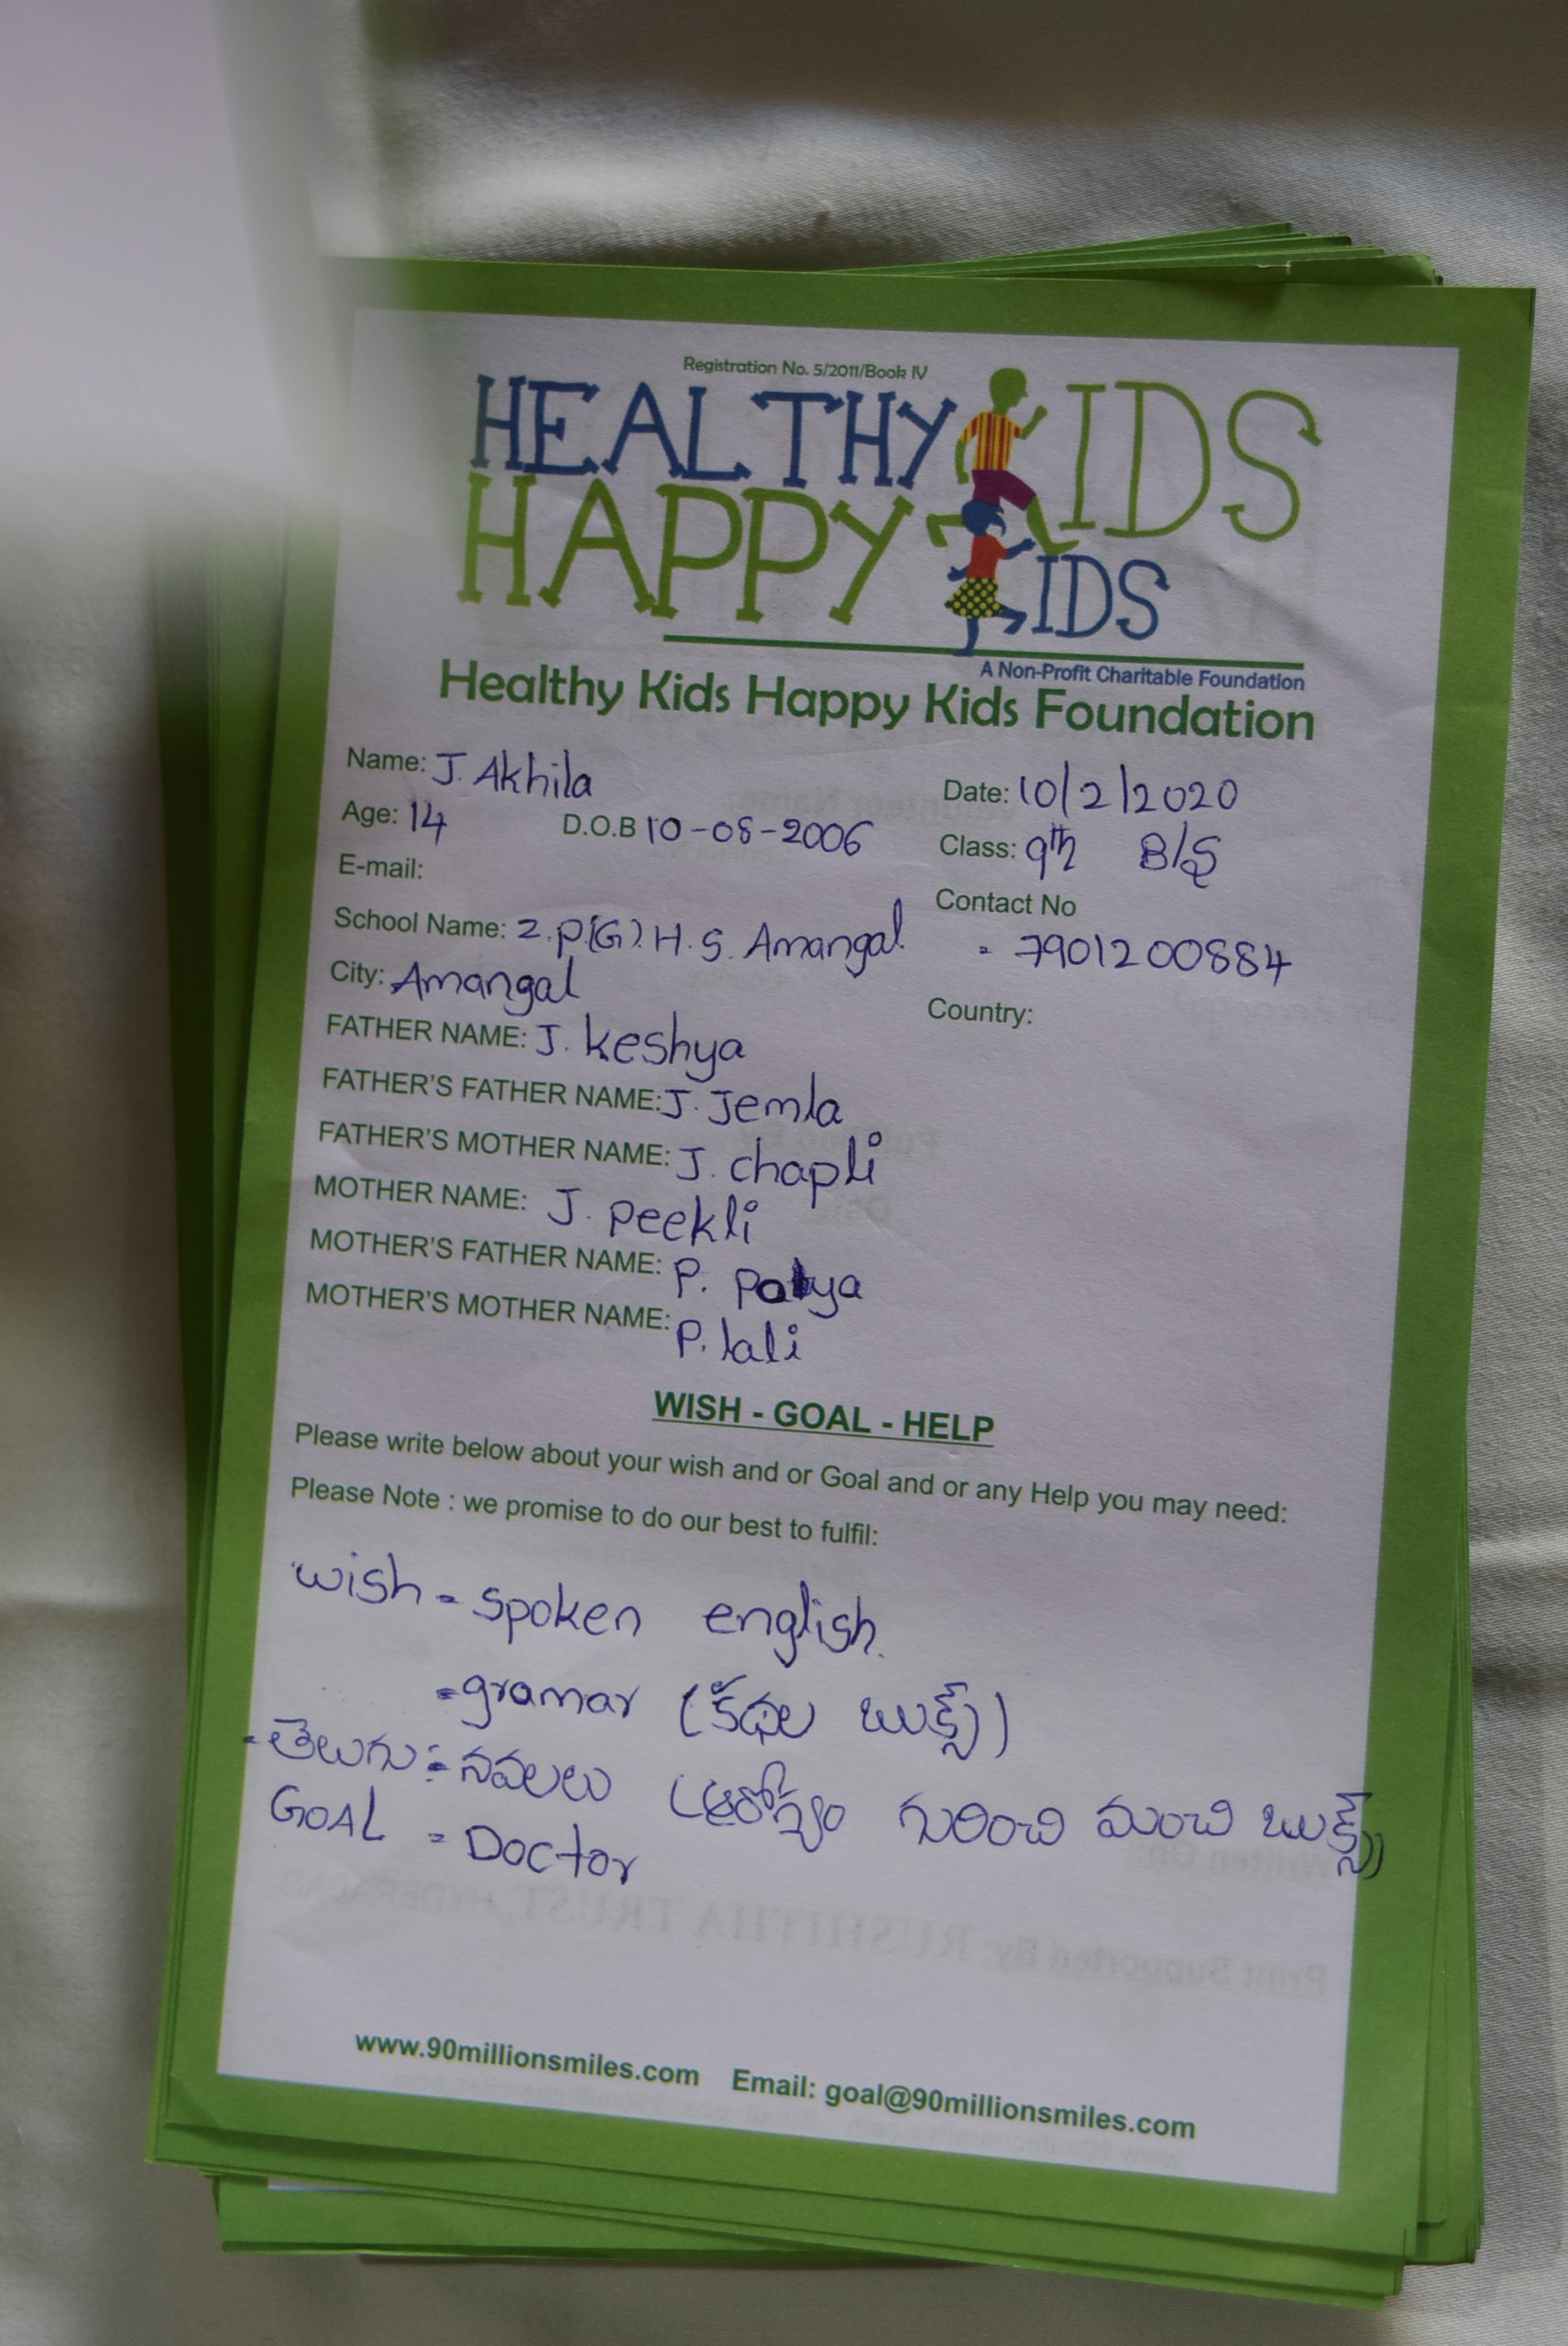 Registration No. 5/2011/Book IV
HEALTHY KIDS
HAPPY KIDS
A Non-Profit Charitable Foundation
Healthy Kids Happy Kids Foundation
Name: J. Akhila Date: 10/2/2020
Age: 14 D.O.B 10-08-2006 Class: 9th B/S
E-mail: Contact No
School Name: Z.P.(G).H.S. Amangal - 7901200884
City: Amangal Country:
FATHER NAME: J. keshya
FATHER'S FATHER NAME: J. Jemla
FATHER'S MOTHER NAME: J. chapli
MOTHER NAME: J. peekli
MOTHER'S FATHER NAME: P.
MOTHER'S MOTHER NAME: P. lali
WISH - GOAL - HELP
Please write below about your wish and or Goal and or any Help you may need:
Please Note : we promise to do our best to fulfil:
wish = spoken english.
=gramar (కథల బుక్స్)
- తెలుగు :- నవలలు (ఆరోగ్యం గురించి మంచి బుక్స్)
GOAL = Doctor
www.90millionsmiles.com Email: goal@90millionsmiles.com